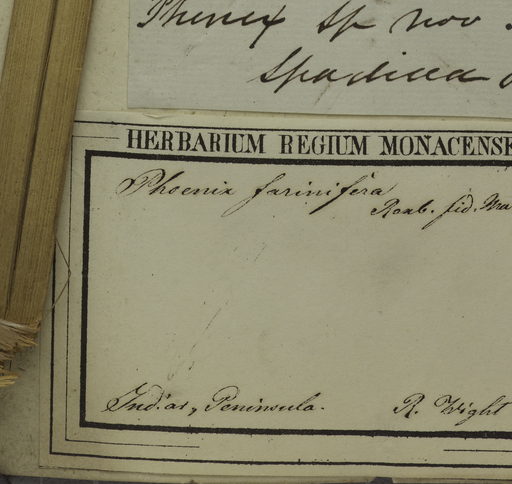 Phenix Sp nov.
Spadicea
HERBARIUM REGIUM MONACENS
Phoenix farinifera
Roxb. fid. Ma
Ind. or. Peninsula.
R. Wight